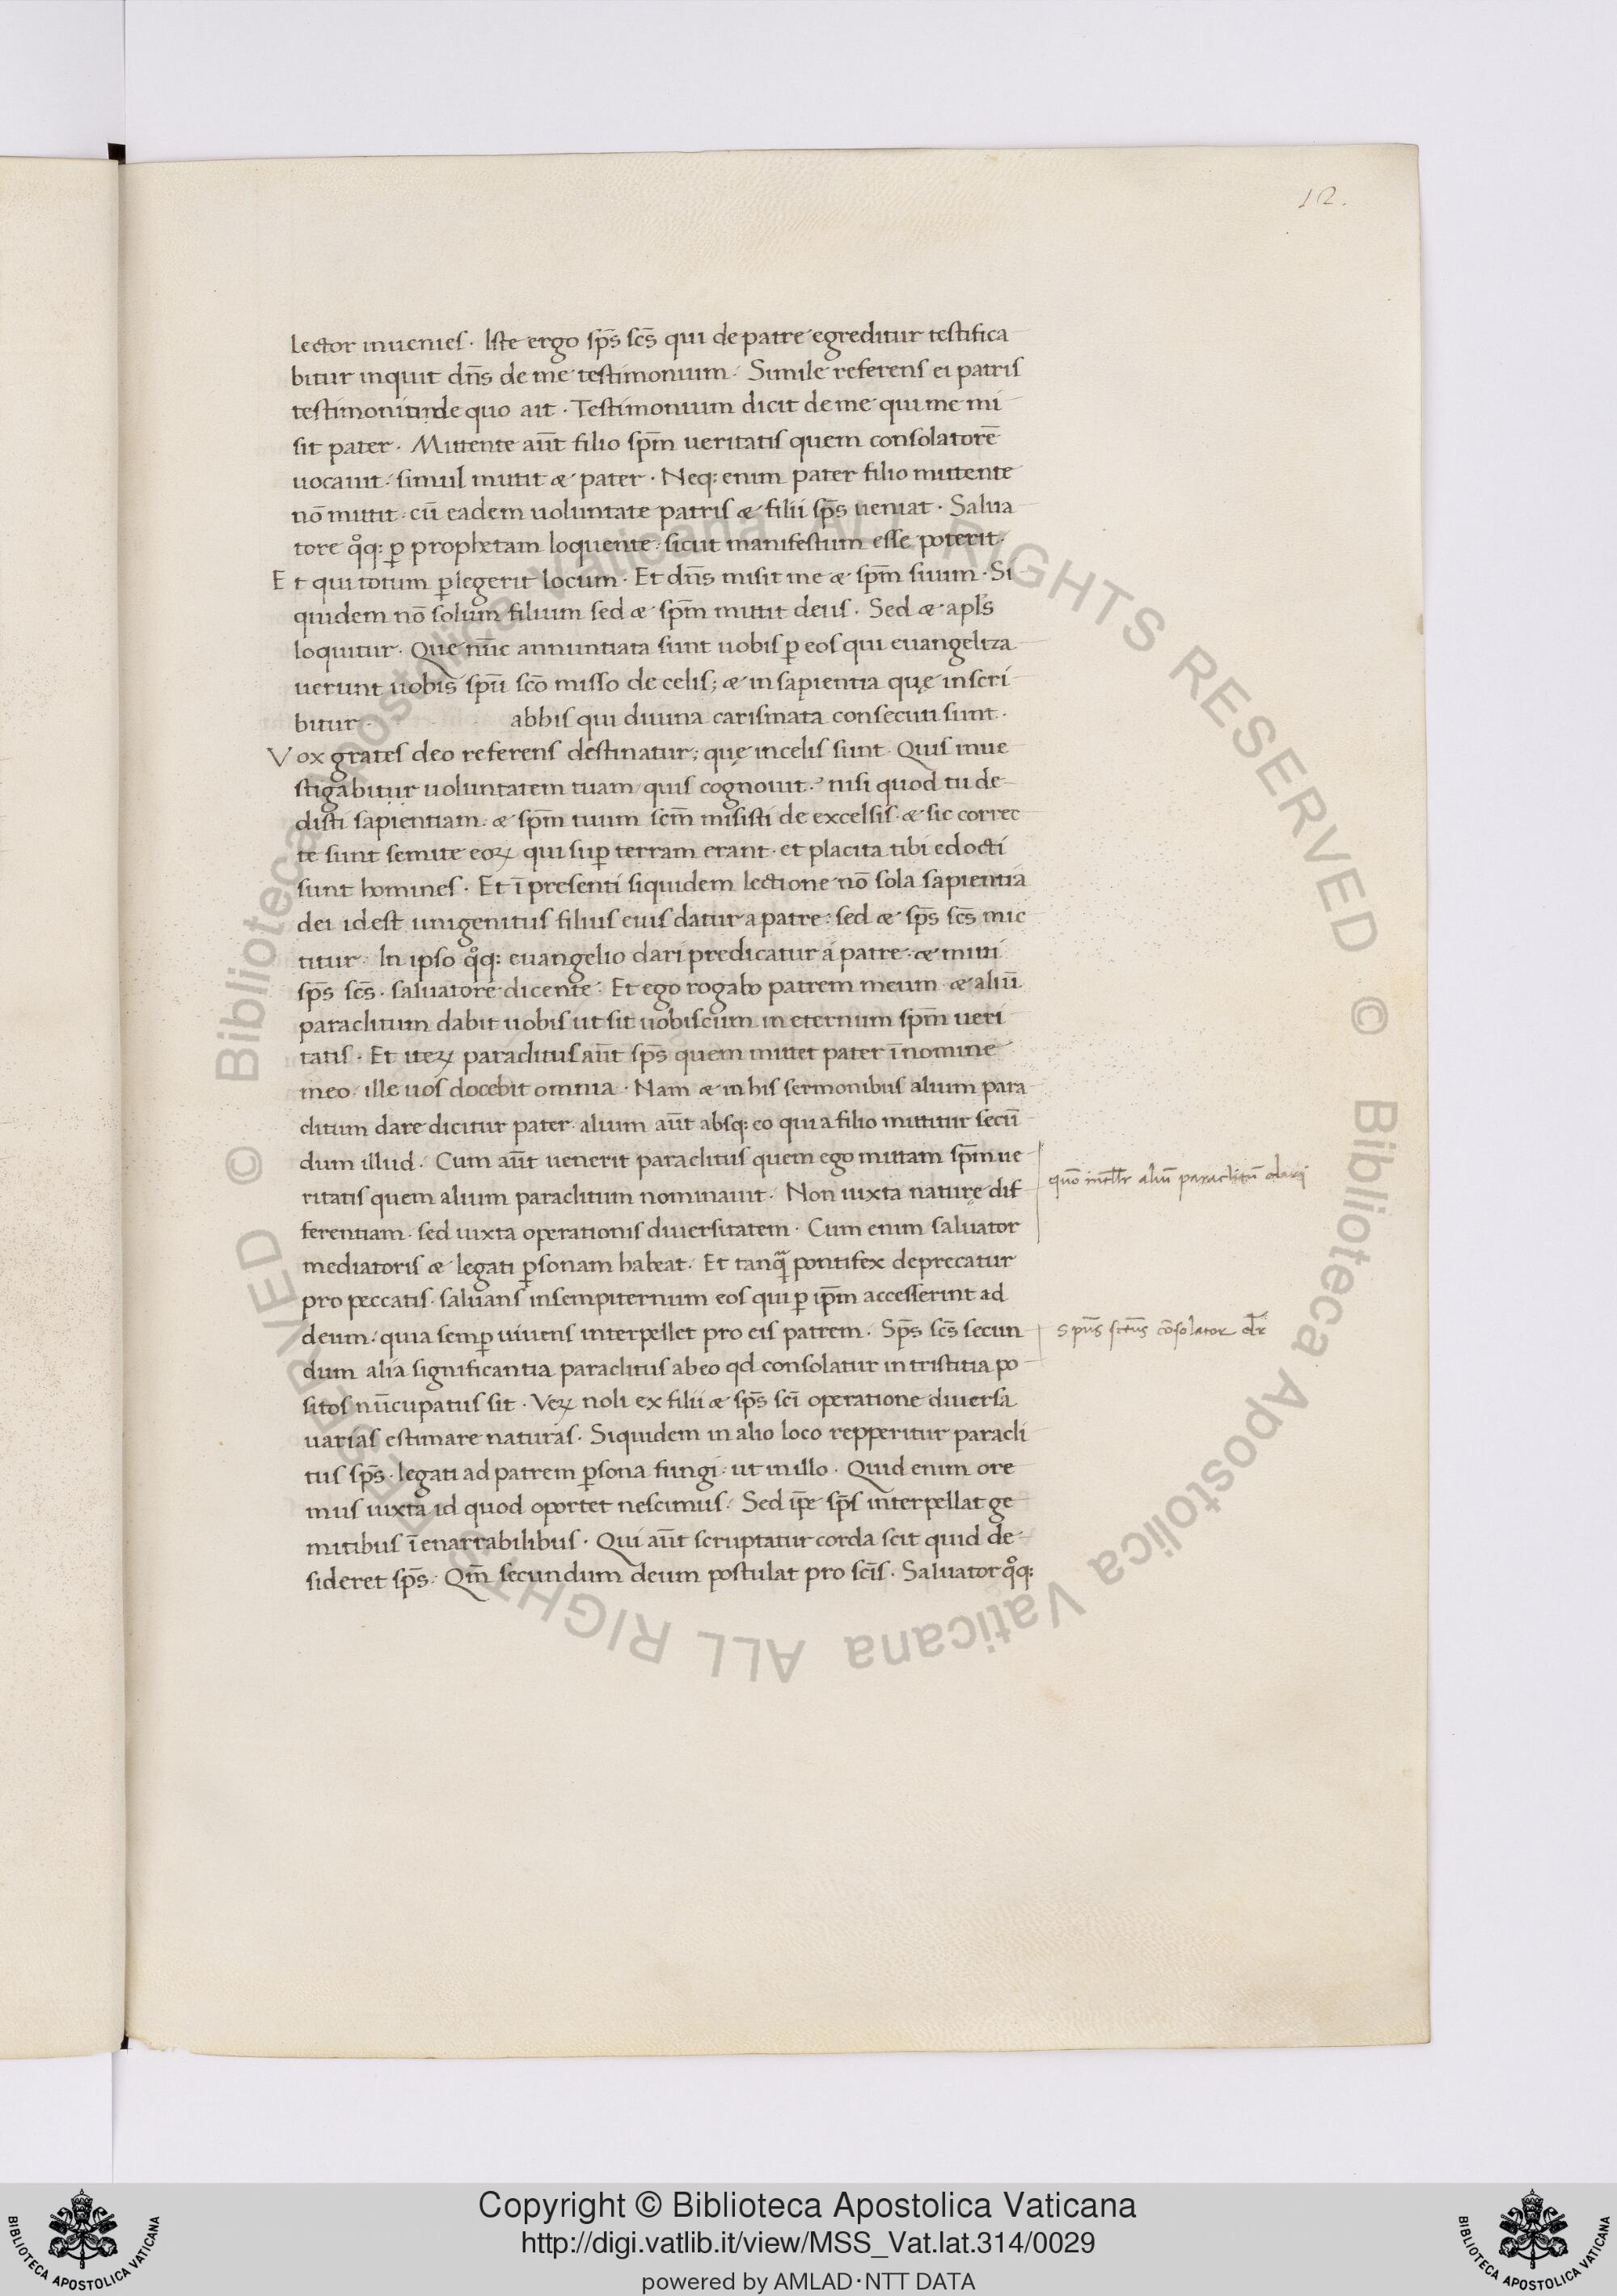 12.
lector inuenies · Iste ergo sp̄s sc̄s qui de patre egreditur testifica
bitur inquit dn̄s de me testimonium · Simile referens ei patris
testimonium de quo ait · Testimonium dicit de me qui me mi
sit pater · Mittente aūt filio sp̄m ueritatis quem consolatorē
uocauit · simul mittit & pater · Neq: enim pater filio mittente
nō mittit · cū eadem uoluntate patris & filii sp̄s ueniat · Salua
tore qͦq: ꝑ prophetam loquente · sicut manifestum esse poterit ·
Et qui totum ꝑlegerit locum · Et dn̄s misit me & sp̄m suum · Si
quidem nō solum filium sed & sp̄m mittit deus · Sed & apl̄s
loquitur · Que nūc annuntiata sunt uobis ꝑ eos qui euangeliza
uerunt uobis spū scō misso de celis; & in sapientia quę inscri
bitur · abbis qui diuina carismata consecuti sunt ·
Vox grates deo referens destinatur; quę in celis sunt · Quis inue
stigabitur uoluntatem tuam quis cognouit · nisi quod tu de
disti sapientiam · & sp̄m tuum scm̄ misisti de excelsis · & sic correc
te sunt semite eoꝝ qui suꝑ terram erant · et placita tibi edocti
sunt homines · Et ī presenti siquidem lectione nō sola sapientia
dei id est unigenitus filius eius datur a patre · sed & sp̄s sc̄s mit
titur · In ipso qͦq: euangelio dari predicatur a patre · & mitti
sp̄s sc̄s · saluatore dicente · Et ego rogabo patrem meum & aliū
paraclitum dabit uobis ut sit uobiscum in eternum sp̄m ueri
tatis · Et iteꝝ paraclitus aūt sp̄s quem mittet pater ī nomine
meo · ille uos docebit omnia · Nam & in his sermonibus alium para
clitum dare dicitur pater · alium aūt absq: eo qui a filio mittitur secū
dum illud · Cum aūt uenerit paraclitus quem ego mittam sp̄m ue
ritatis quem alium paraclitum nominauit · Non iuxta naturę dif
ferentiam · sed iuxta operationis diuersitatem · Cum enim saluator
mediatoris & legati ꝑsonam habeat · Et tanq̄ pontifex deprecatur
pro peccatis · saluans in sempiternum eos qui ꝑ ip̄m accesserint ad
deum · quia semꝑ uiuens interpellet pro eis patrem · Sp̄s sc̄s secun
dum alia significantia paraclitus ab eo qd consolatur in tristitia po
sitos nūcupatus sit · Veꝝ noli ex filii & sp̄s scī operatione diuersa
uarias estimare naturas · Siquidem in alio loco repperitur paracli
tus sp̄s · legati ad patrem ꝑsona fungi · ut in illo · Quid enim ore
mus iuxta id quod oportet nescimus · Sed ip̄e sp̄s interpellat ge
mitibus ī enarrabilibus · Qui aūt scruptatur corda scit quid de
sideret sp̄s · Qm̄ secundum deum postulat pro scīs · Saluator qͦq:
quō intellr̄ aliū paraclitū dari
Spūs sctūs cōsolator dr̄
Copyright © Biblioteca Apostolica Vaticana
http://digi.vatlib.it/view/MSS_Vat.lat.314/0029
powered by AMLAD·NTT DATA
BIBLIOTECA APOSTOLICA VATICANA
BIBLIOTECA APOSTOLICA VATICANA
© Biblioteca Apostolica Vaticana ALL RIGHTS RESERVED
© Biblioteca Apostolica Vaticana ALL RIGHTS RESERVED